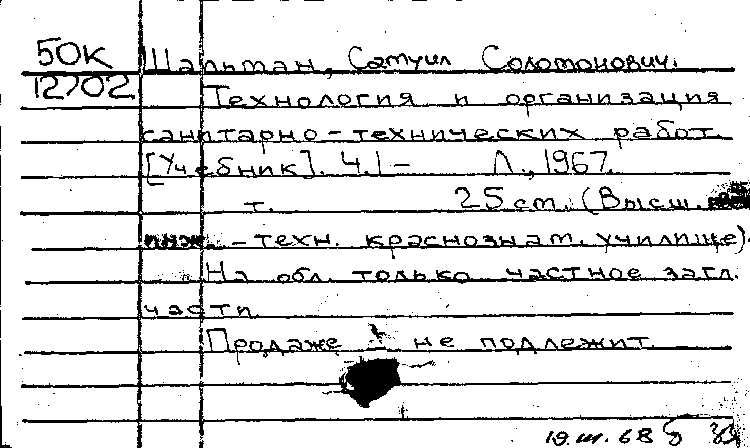 50К Шальман, Самуил Соломонович.
12702 Технология и организация
санитарно-технических работ.
[Учебник]. Ч.I— Л., 1967.
т. 25 см. (Высш.
инж.-техн. краснознам. училище).
На обл. только частное загл.
части.
Продаже не подлежит.
19.III.68